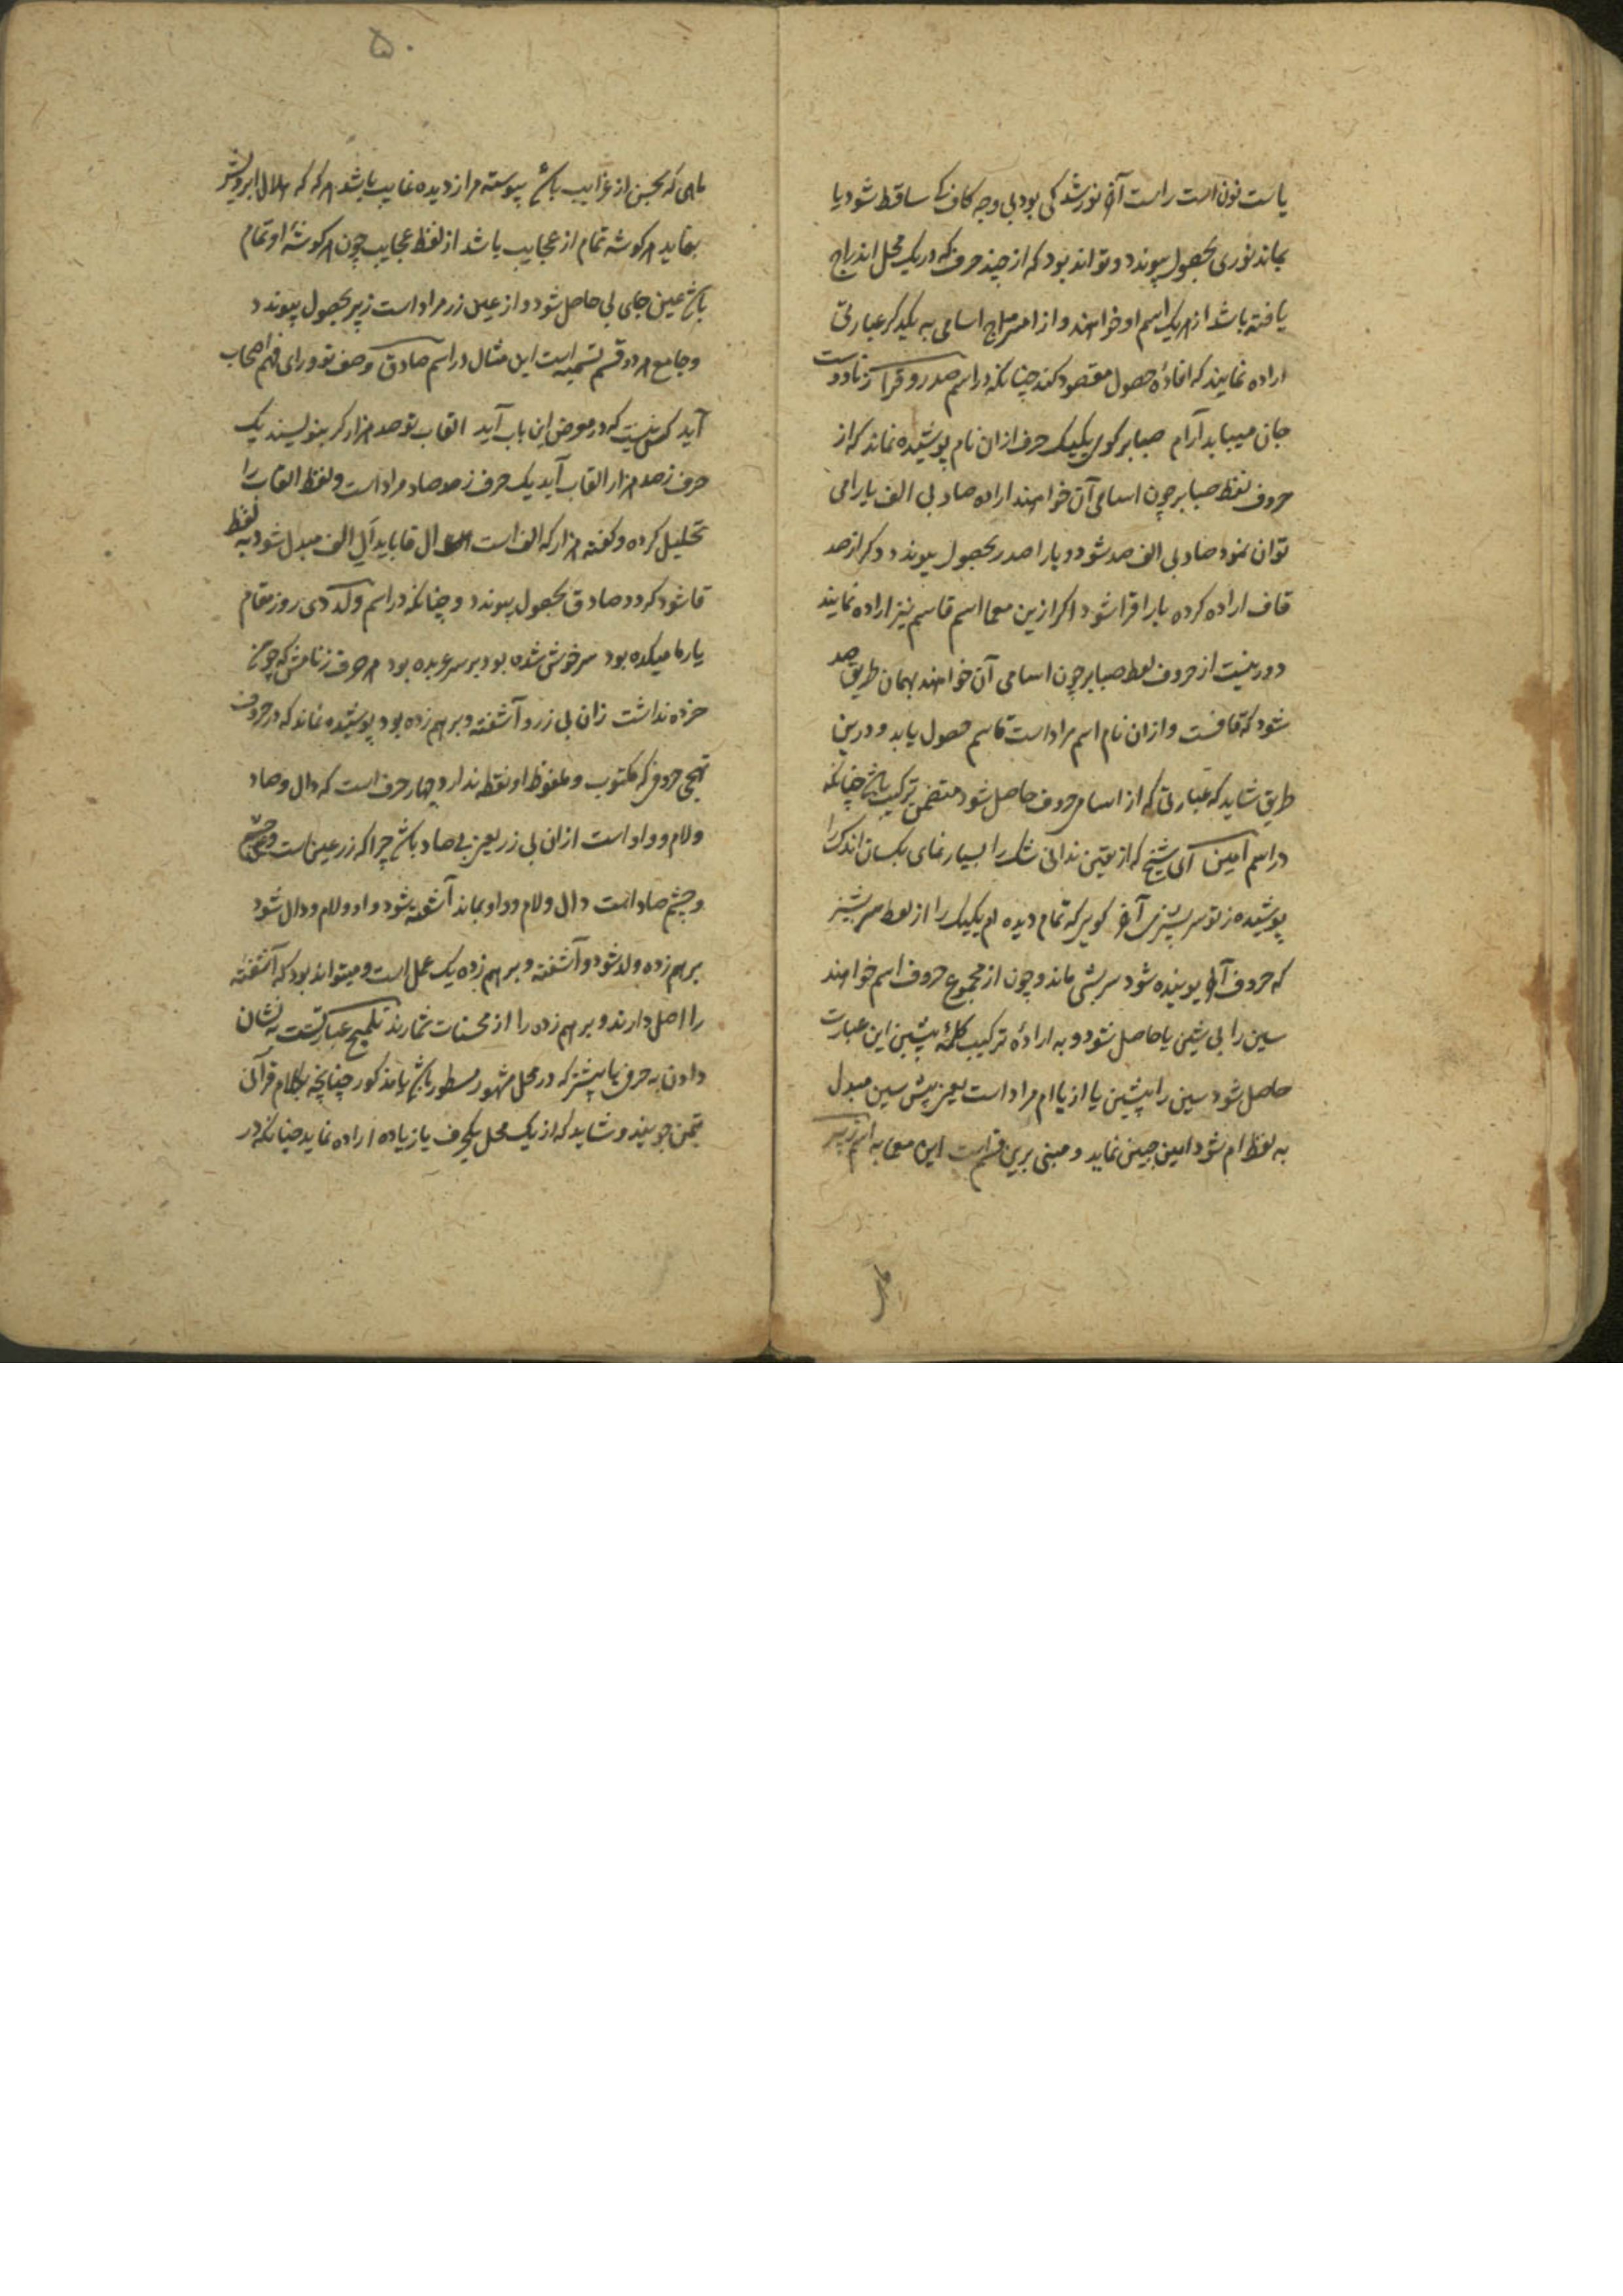 یاست نون است راست آن نورشد کی بود بی وجه کاف کی ساقط شود یا
بماند نوری بحصول پیوندد و تواند بود که از چند حرف که در یک محل اندراج
یافته باشد از هر یک اسم او خواهند و از امتزاج اسامی به یکدیگر عبارتی
اراده نمایند که افادهٔ حصول مقصود کند چنانکه در اسم صدر و قرا
جان میباید آرام صبا بر کوی یکیک حرف ازان نام پوشیده نماند که از
حروف لفظ صبا بر چون اسامی آن خواهند اراده صاد بی الف یا رامی
توان نمود صاد بی الف صد شود و یا را صدر بحصول پیوندد و کر از صد
قاف اراده کرده با را قرا شود اگر ازین معما اسم قاسم نیز اراده نمایند
دور نیست از حروف لفظ صبا بر چون اسامی آن خواهند بهمان طریق صد
شود که قافست و ازان نام اسم مراد است قاسم حصول یابد و درین
طریق شاید که عبارتی که از اسامی حروف حاصل شود متضمن ترکیب باشد چنانکه
در اسم امین ای شیخ که از یقین ندانی شک را بسیار نمای بکسان اندک را
پوشیده ز تو سر بشیزی آخر کویی که تمام دیده‌ام یکیک را از لفظ سر بشیز
که حروف آخر پوشیده شود سر بشی ماند و چون از مجموع حروف اسم خواهند
سین را بی شین یا حاصل شود و به ارادهٔ ترکیب کلمهٔ پیشین این عبارت
حاصل شود سین را پیشین یا از یا ام مراد است یعنی پیش سین مبدل
به لفظ ام شود امین چنین نماید و مبنی برین قسم است این معما به اسم زبیر
ماهی که بحسن از غرایب باشد پیوسته مرا ز دیده غایب باشد هر که که هلال ابرویش
بنماید هر کوشه تمام از عجایب باشد از لفظ عجایب چون هر کوشهٔ او تمام
باشد عین جای بی حاصل شود و از عین زر مراد است زبیر بحصول پیوندد
و جامع هر دو قسم تسمیه است این مثال در اسم صادق وصف تو ورای فهم اصحاب
آید کس نیست که در معرض این باب آید القاب تو صد هزار کر بنویسند یک
حرف ز صد هزار القاب آید یک حرف ز صد صاد مراد است و لفظ القاب را
تحلیل کرده و کفته هزار که الف است ال قا باید آل الف مبدل شود به لفظ
قا شود کردد صادق بحصول پیوندد و چنانکه در اسم ولد دی روز مقام
یار ما میکده بود سرخوش شده بود بر سر عربده بود هر حرف ز نامش که چو من
خرده نداشت زان بی زر و آشفته و برهم زده بود پوشیده نماند که در حروف
تهجی حروفی که مکتوب و ملفوظ او نقطه ندارد چهار حرف است که دال و صاد
و لام و واو است ازان بی زر یعنی بی صاد باشد چرا که زر عین است و عین چشم
و چشم صاد است دال و لام و واو بماند آشفته شود واو و لام و دال شود
برهم زده ولد شود و آشفته و برهم زده یک عمل است و میتواند بود که آشفته
را اصل دارند و برهم زده را از محسنات شمارند تلمیح عبارتست به نشان
دادن به حرف یا بیشتر که در محلی مشهور مسطور باشد یا مذکور چنانچه بکلام قرآنی
تیمن جویند و شاید که از یک محل یکحرف یا زیاده اراده نماید چنانکه در